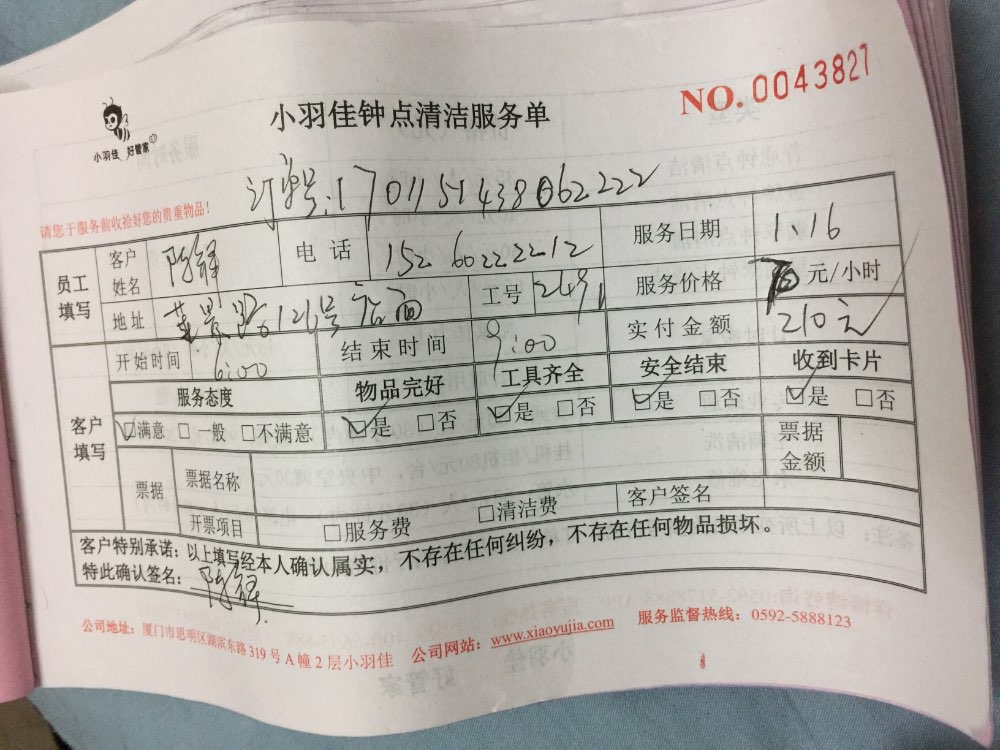 NO.0043827
小羽佳钟点清洁服务单
小羽佳 好管家
订单号:1701151438062222
请您于服务前收拾好您的贵重物品!
员工填写 客户姓名 电话 15260222212 服务日期 1.16
地址 126号店面 工号 服务价格 70元/小时
开始时间 6:00 结束时间 9:00 实付金额 210元
客户填写 服务态度 物品完好 工具齐全 安全结束 收到卡片
☑满意 □一般 □不满意 ☑是 □否 ☑是 □否 ☑是 □否 ☑是 □否
票据 票据名称 票据金额
开票项目 □服务费 □清洁费 客户签名
客户特别承诺:以上填写经本人确认属实,不存在任何纠纷,不存在任何物品损坏。
特此确认签名:
公司地址:厦门市思明区湖滨东路319号A幢2层小羽佳 公司网站:www.xiaoyujia.com 服务监督热线:0592-5888123